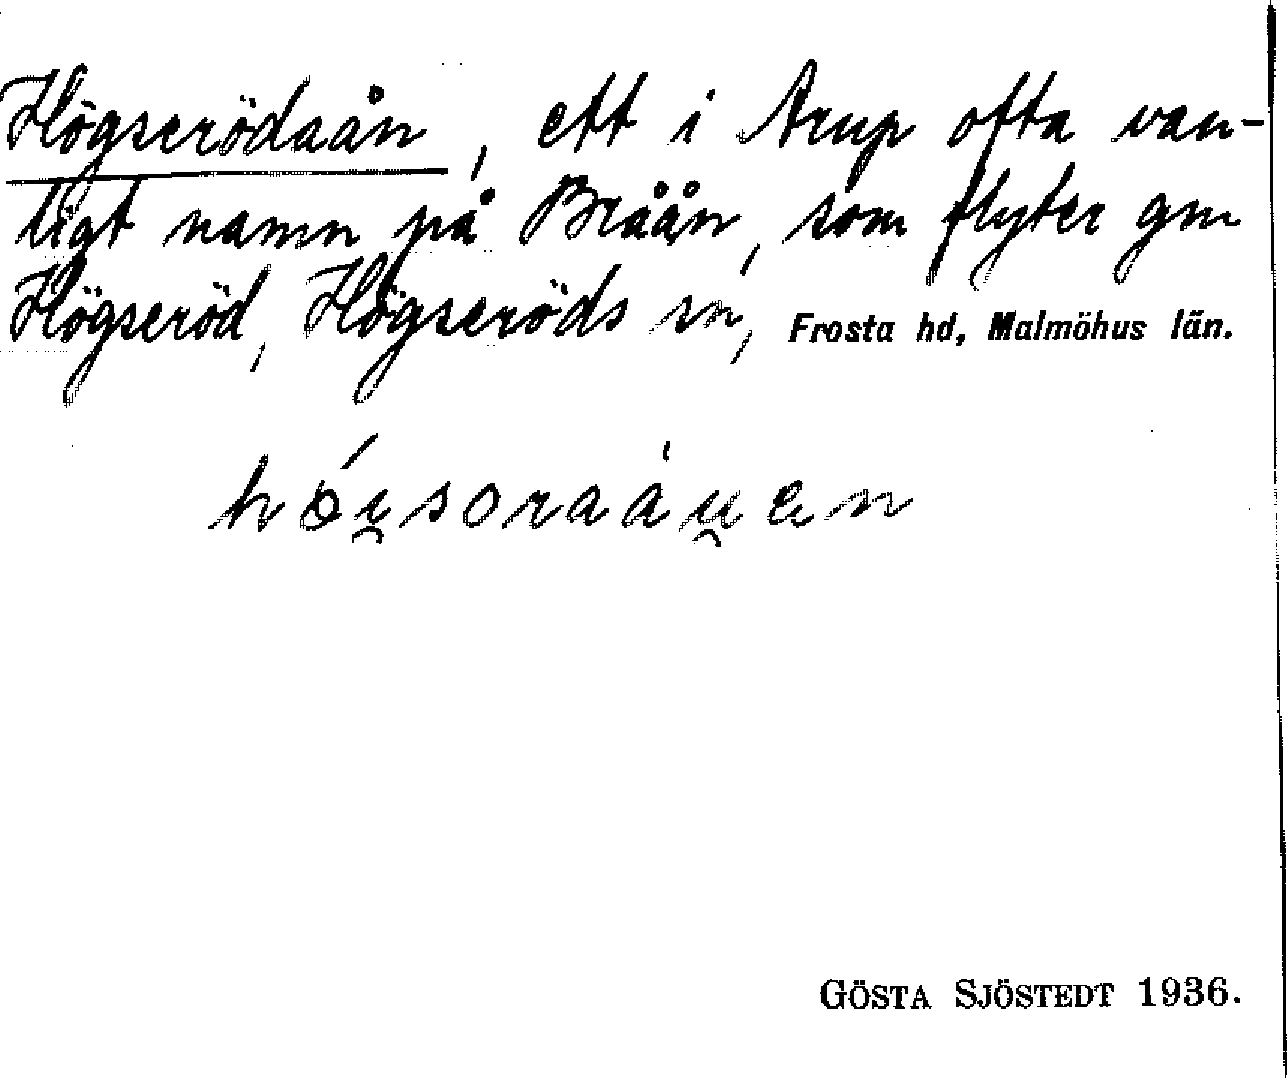 Högserödaån, ett i Arup ofta van-
ligt namn på Bråån, som flyter gm
Högseröd, Högseröds sn, Frosta hd, Malmöhus län.
hǿi̯soraåu̯en
GÖSTA SJÖSTEDT 1936.